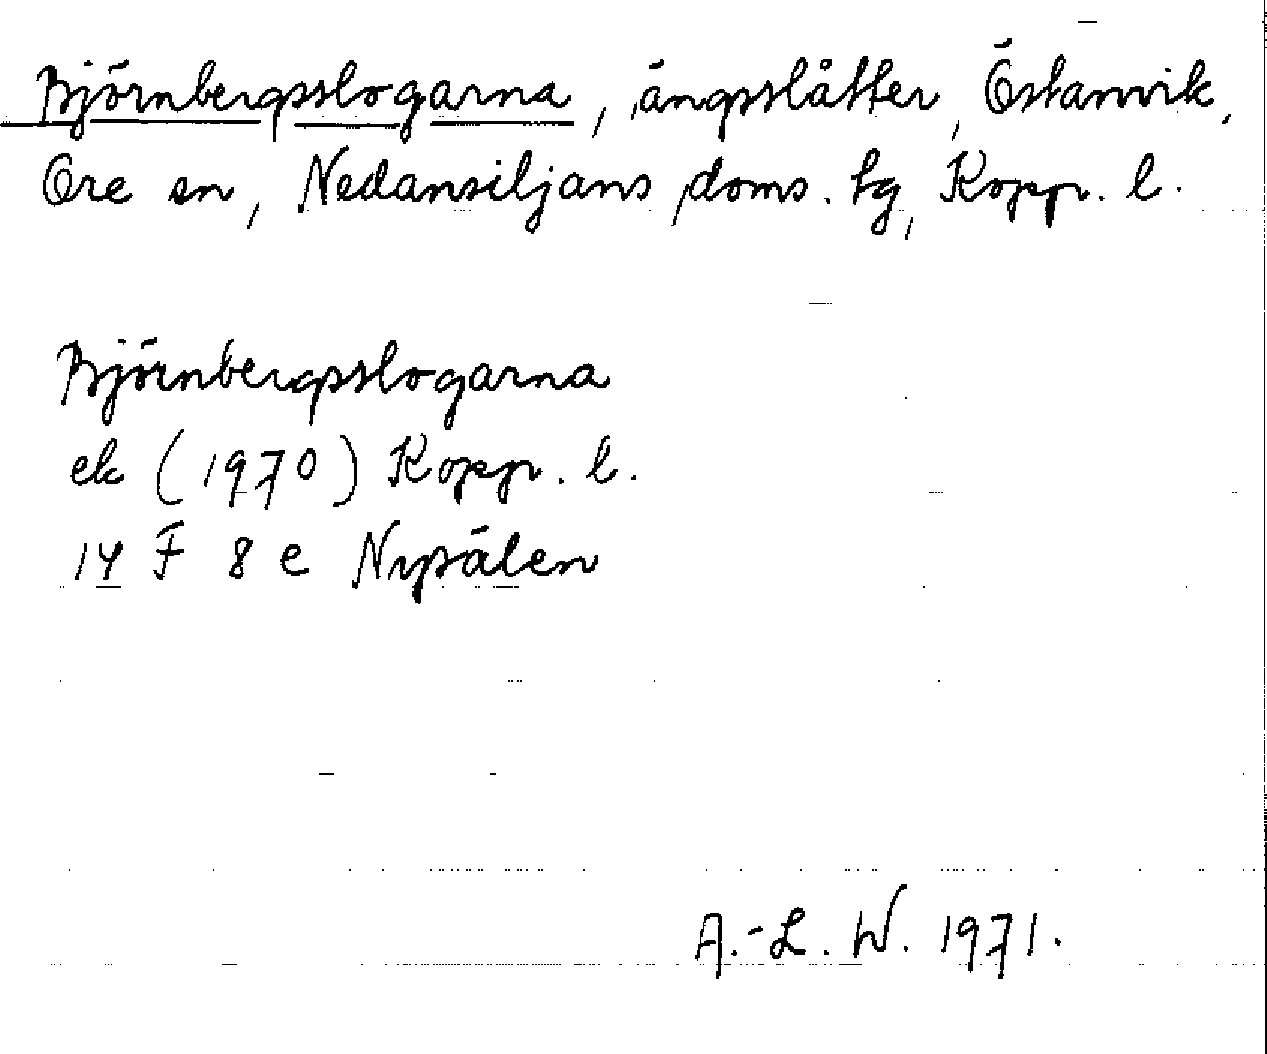 Björnbergsslogarna, ängsslåtter, Östanvik,
Ore sn, Nedansiljans doms. tg, Kopp. l.
Björnbergsslogarna
ek (1970) Kopp. l.
14 F 8 e Nysälen
A.-L. W. 1971.